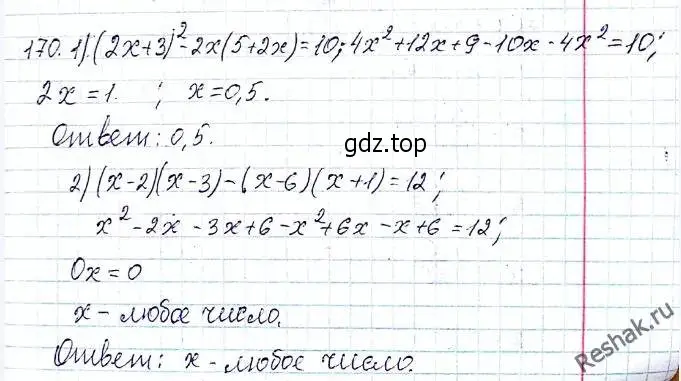 170. 1) (2x+3)²-2x(5+2x)=10; 4x²+12x+9-10x-4x²=10;
2x=1. ; x=0,5.
Ответ: 0,5.
gdz.top
2) (x-2)(x-3)-(x-6)(x+1)=12;
x²-2x-3x+6-x²+6x-x+6=12;
0x=0
x - любое число.
Ответ: x - любое число.
Reshak.ru